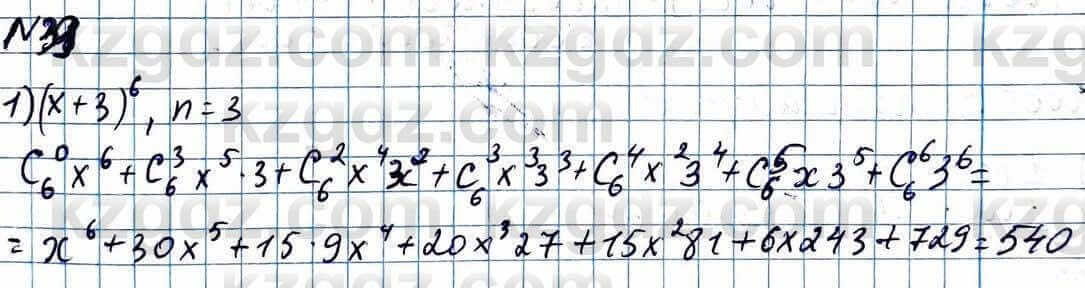 N 39
1) (x+3)^6, n=3
C_6^0 x^6 + C_6^3 x^5 · 3 + C_6^2 x^4 3^2 + C_6^3 x^3 3^3 + C_6^4 x^2 3^4 + C_6^5 x 3^5 + C_6^6 3^6 =
= x^6 + 30x^5 + 15 · 9x^4 + 20x^3 27 + 15x^2 81 + 6x243 + 729 = 540
kzgdz.com kzgdz.com
kzgdz.com
kzgdz.com kzgdz.com